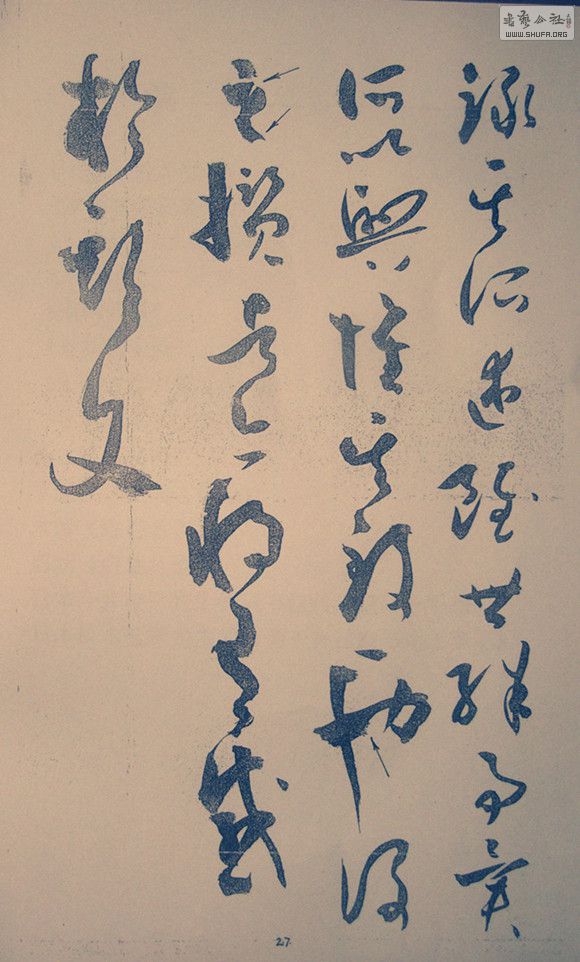 書藝公社
WWW.SHUFA.ORG
錄其所述雖世殊事異
所以興懷其致一也後
之攬者亦將有感
於斯文
27